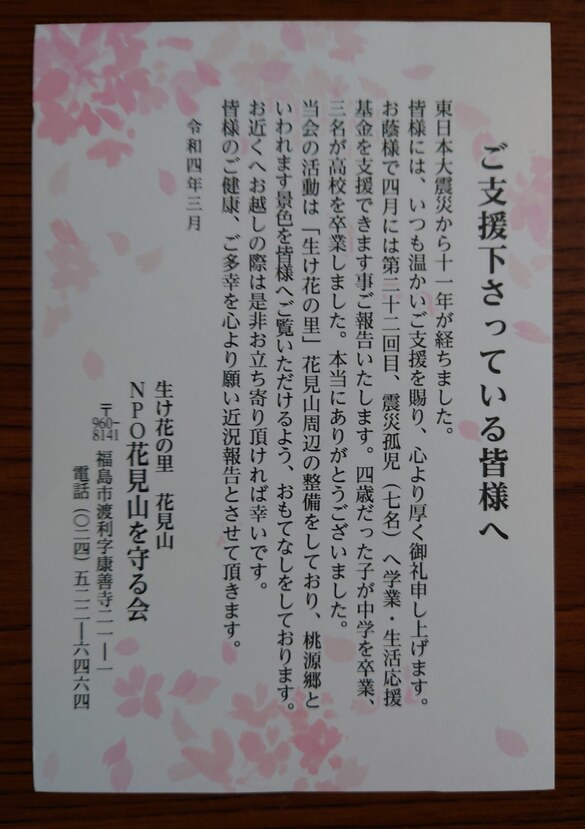 ご支援下さっている皆様へ
東日本大震災から十一年が経ちました。
皆様には、いつも温かいご支援を賜り、心より厚く御礼申し上げます。
お蔭様で四月には第二十二回目、震災孤児（七名）へ学業・生活応援
基金を支援できます事ご報告いたします。四歳だった子が中学を卒業、
三名が高校を卒業しました。本当にありがとうございました。
当会の活動は「生け花の里」花見山周辺の整備をしており、桃源郷と
いわれます景色を皆様へご覧いただけるよう、おもてなしをしております。
お近くへお越しの際は是非お立ち寄り頂ければ幸いです。
皆様のご健康、ご多幸を心より願い近況報告とさせて頂きます。
令和四年三月
生け花の里　花見山
NPO花見山を守る会
〒960-8141 福島市渡利字康善寺二一―一
電話（〇二四）五二二―六四六四